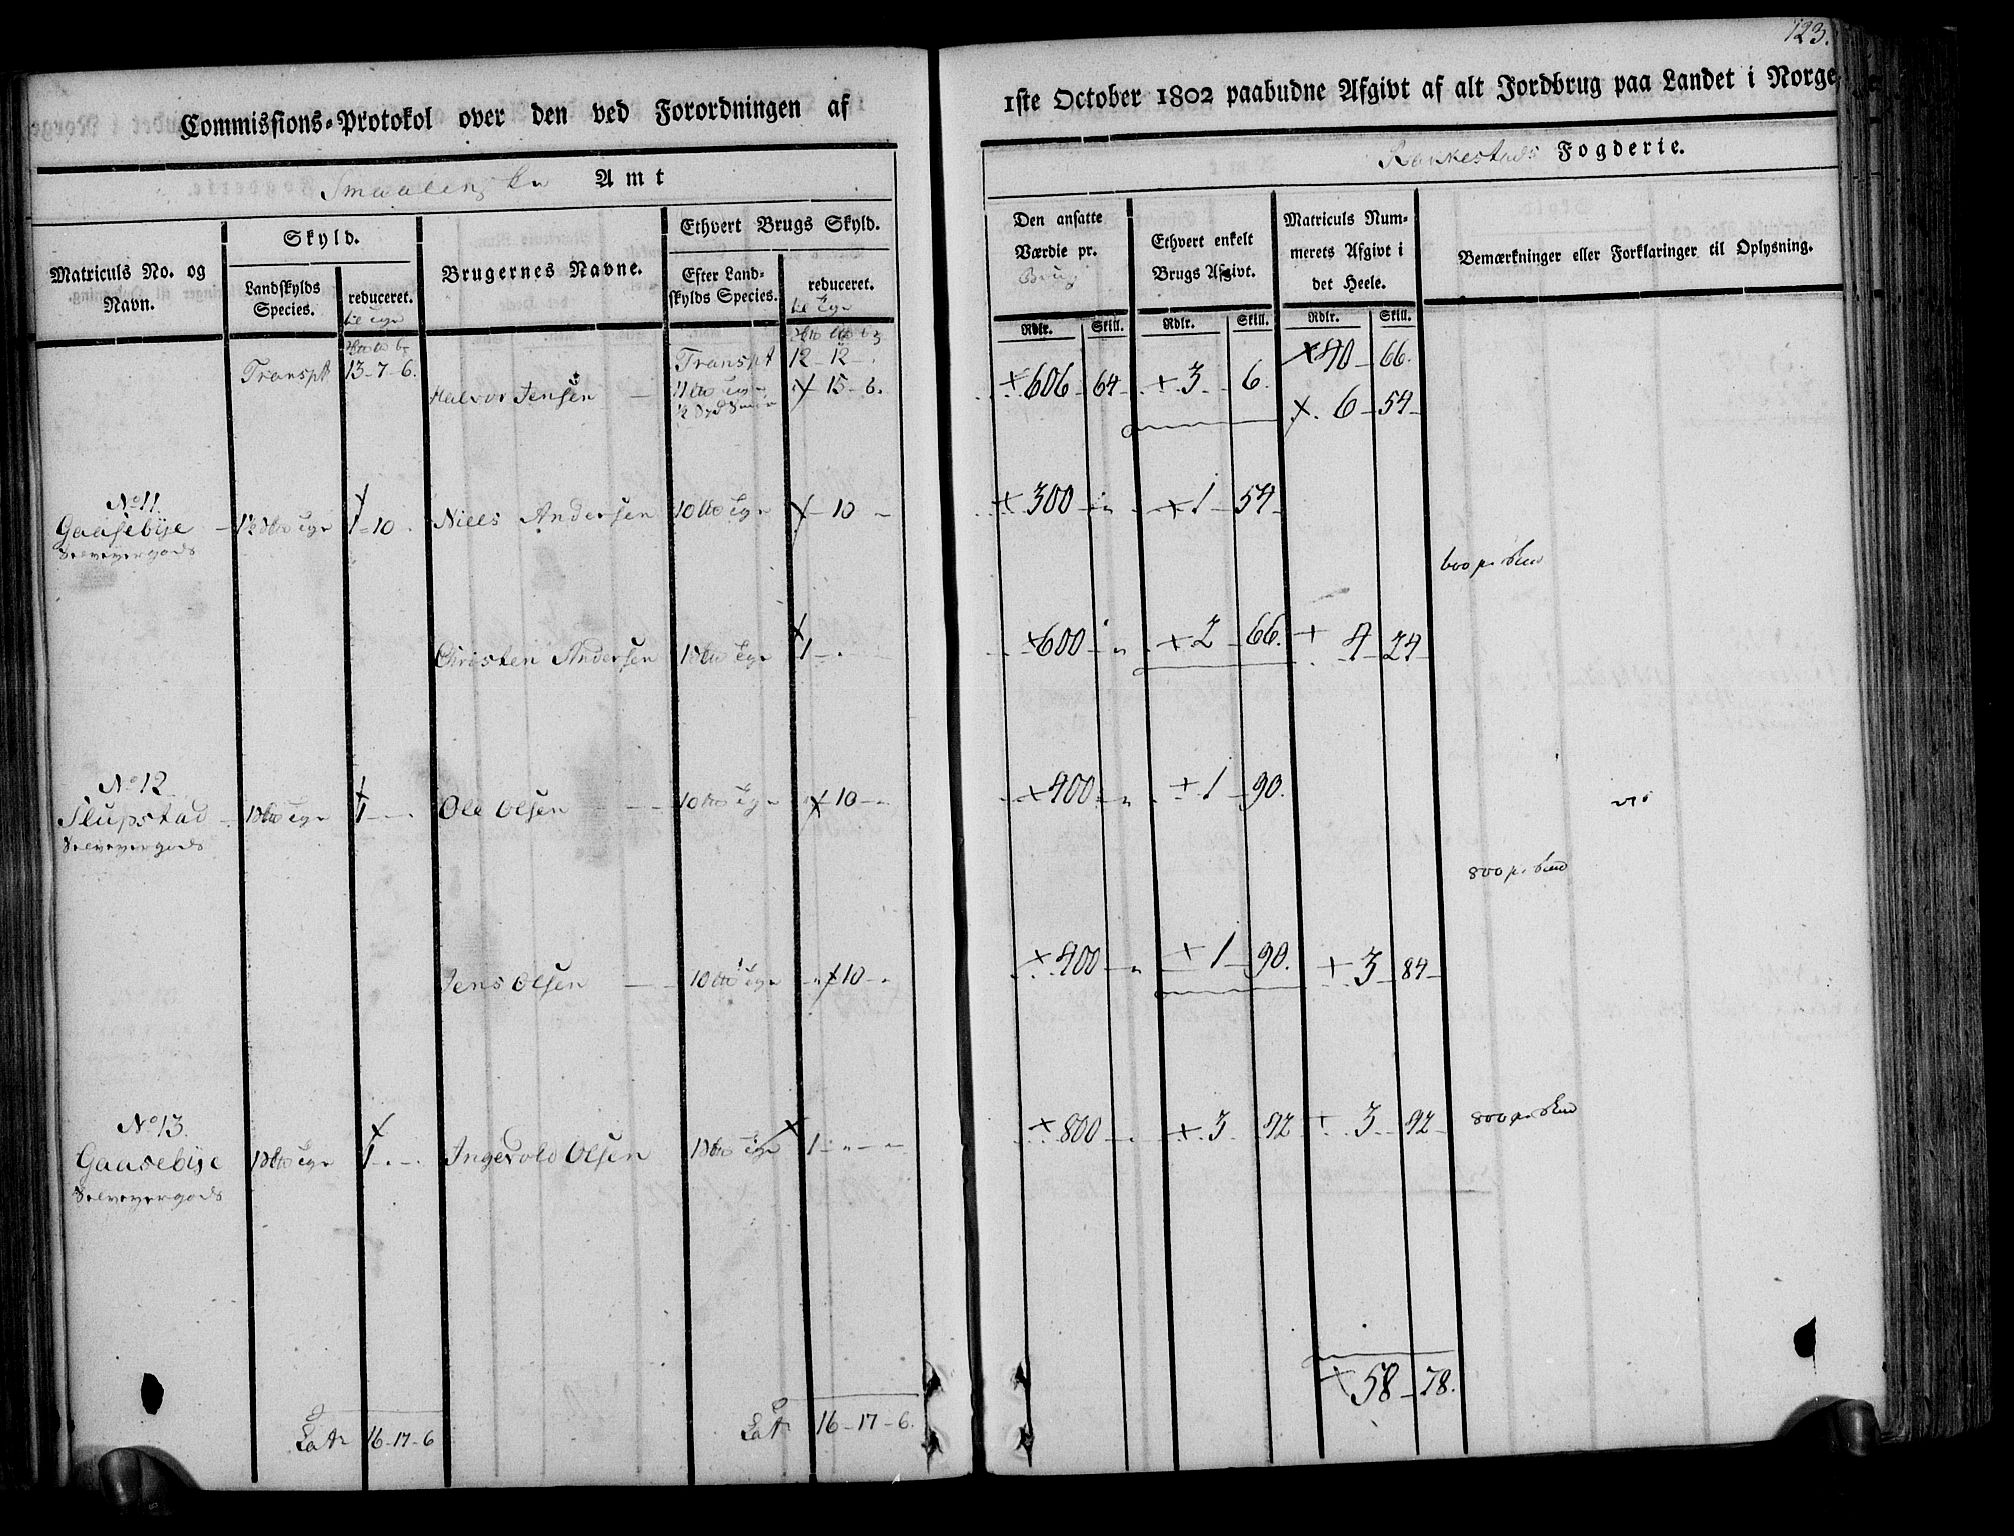 123.
Commissions-Protokol over den ved Forordningen af 1ste October 1802 paabudne Afgivt af alt Jordbrug paa Landet i Norge
Smaalenske Amt
Rakkestads Fogderie.
Matriculs No. og Navn.
Skyld.
Landskylds Species.
reduceret.
til Tyr
Brugernes Navne.
Ethvert Brugs Skyld.
Efter Landskylds Species.
reduceret.
til Tyr
Den ansatte Værdie pr. Brug
Ethvert enkelt Brugs Afgivt.
Matriculs Nummerets Afgivt i det Heele.
Bemærkninger eller Forklaringer til Oplysning.
Rdlr. Skill. Rdlr. Skill. Rdlr. Skill.
Transpt 13-7-6. Transpt 12-12-. 40-66.
Halvor Jensen - 15-6. 606-64- 3-6. 6-54-
No 11.
Gaasebye 1-10. Niels Andersen 10 - 10 - 300 - 1-54-
Selveyergods
600 pr Skd
Christen Andersen 1 - - 600 - 2-66. 4-24-
No 12.
Slupstad 1 - - Ole Olsen 10 - 10 - 400 - 1-90.
Selveyergods
800 pr Skd
Jens Olsen 10 - 10 - 400 - 1-90. 3-84-
No 13.
Gaasebye 1 - - Ingevold Olsen 1 - - 800 - 3-92 3-92- 800 pr Skd
Selveyergods
58-78.
Lat. 16-17-6 Lat. 16-17-6.